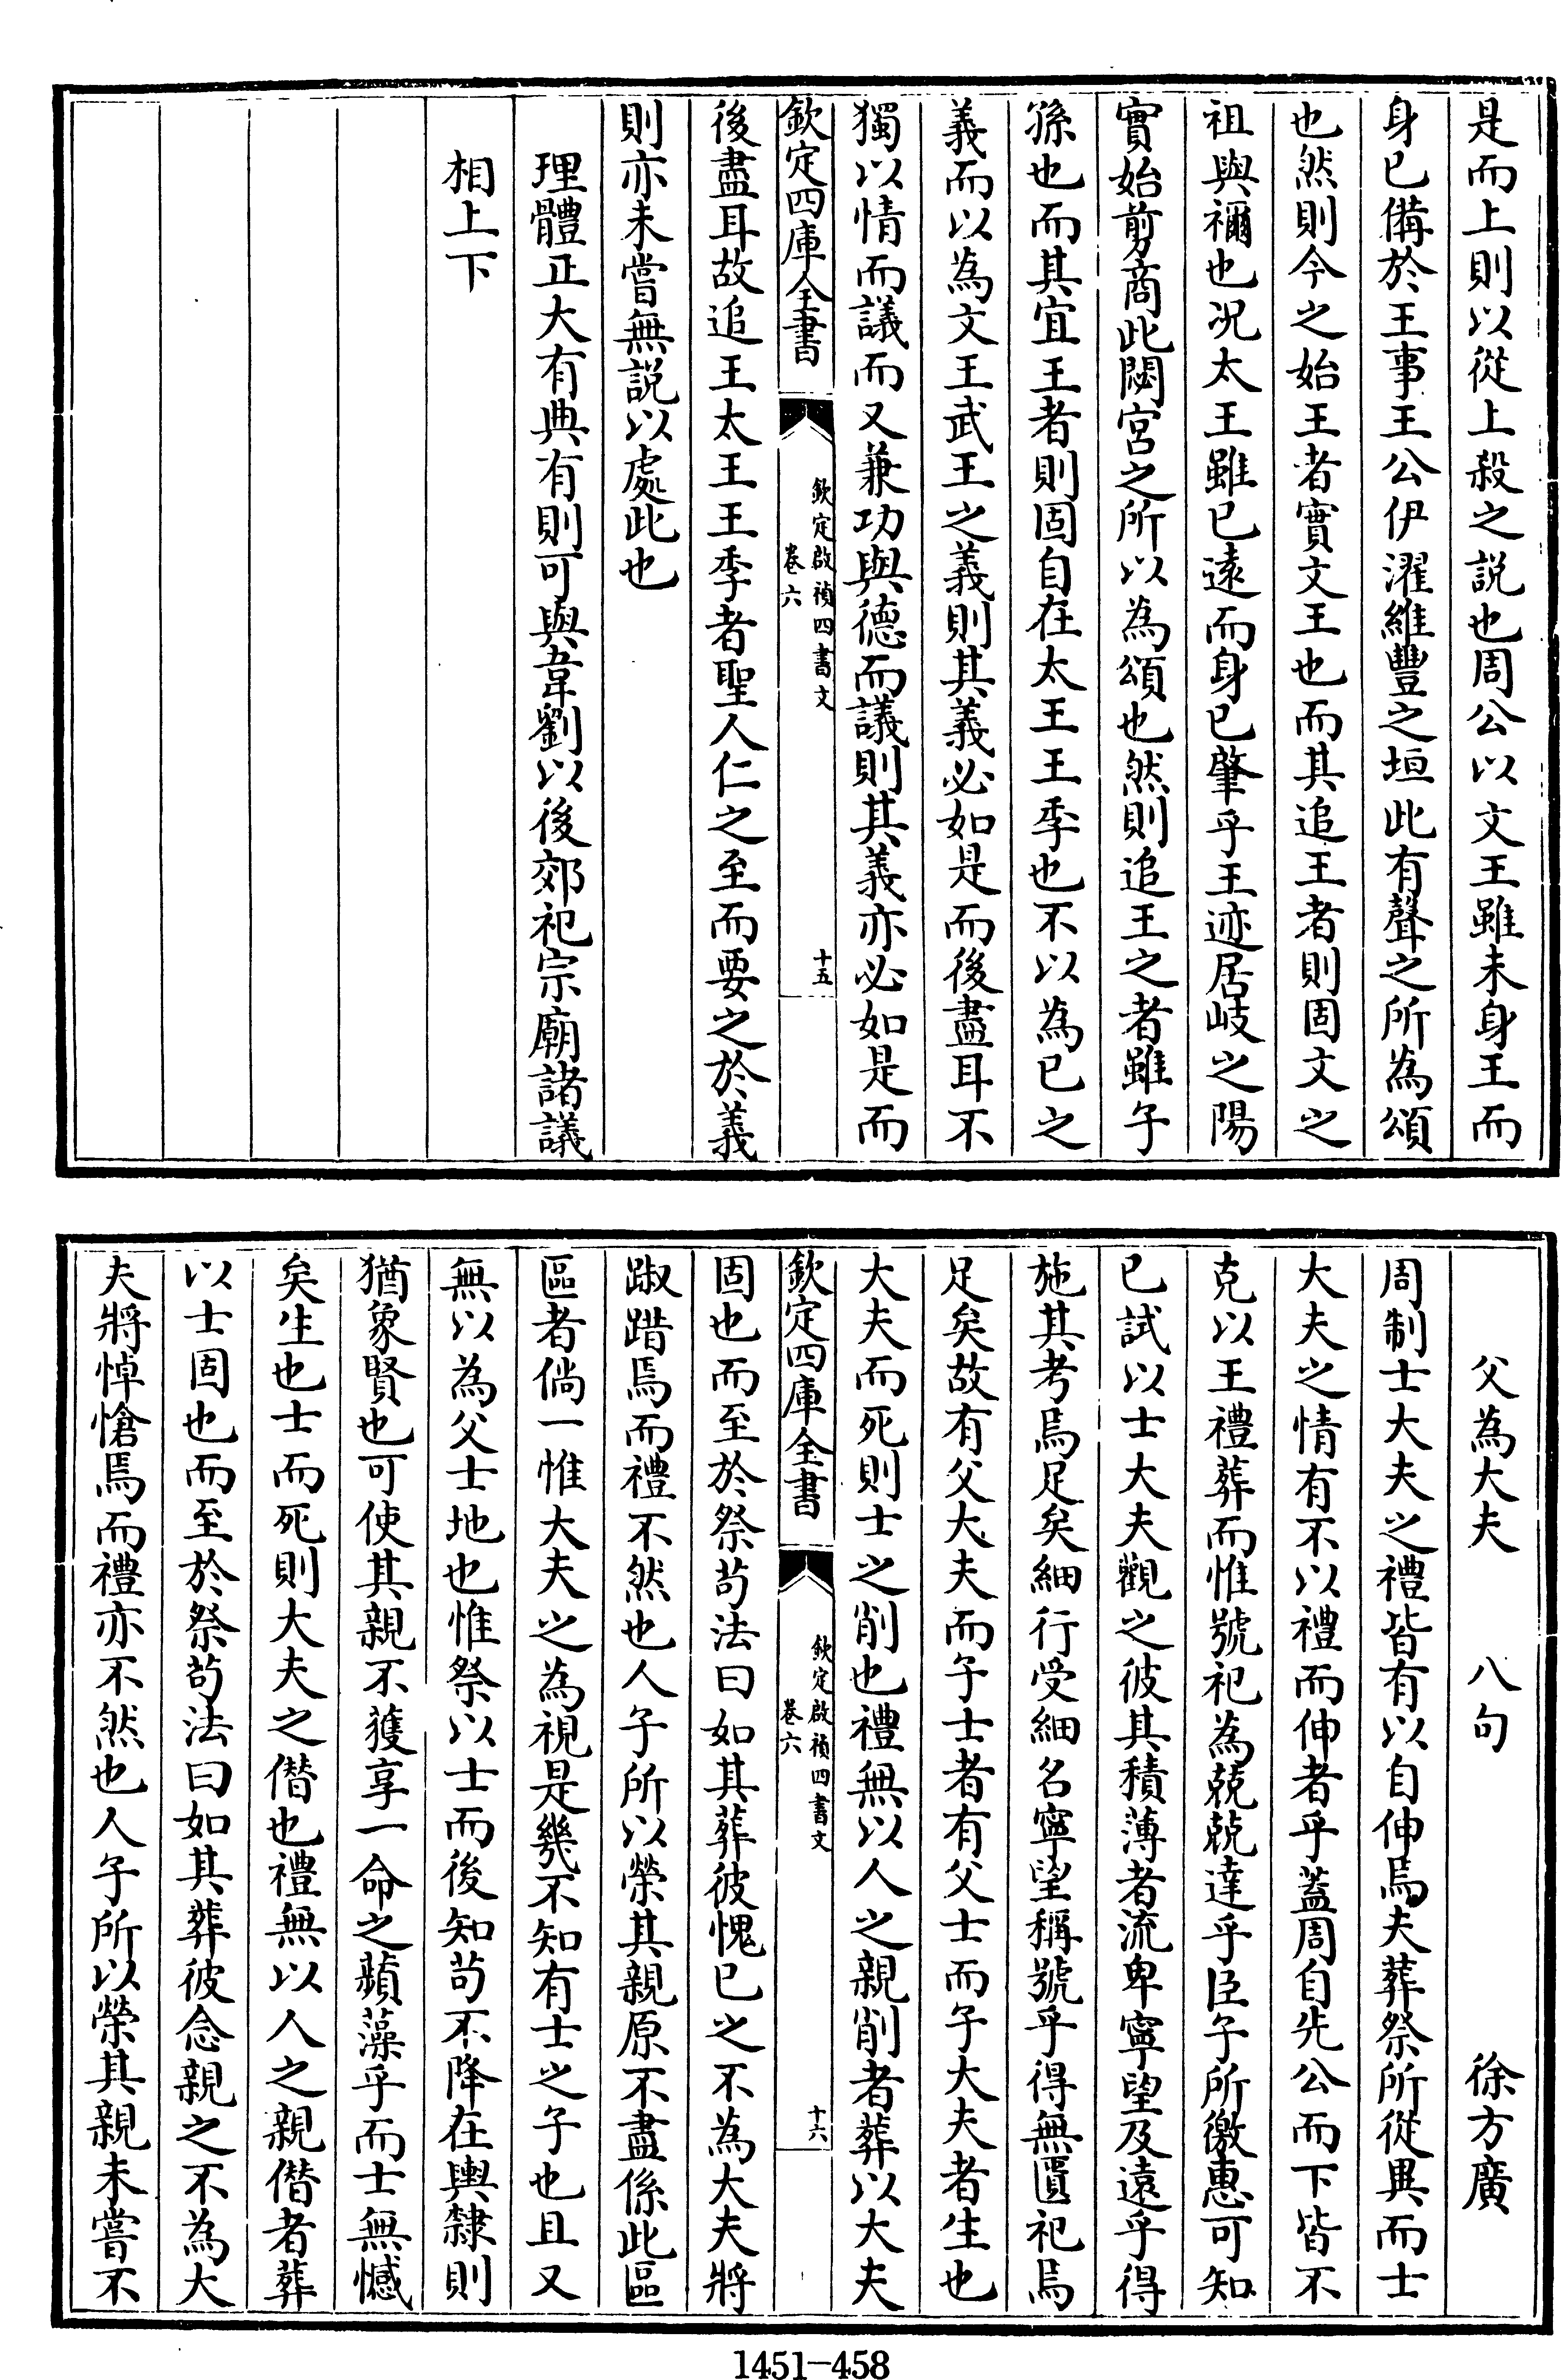 是而上則以從上殺之説也周公以文王雖未身王而
身已備於王事王公伊濯維豐之垣此有聲之所為頌
也然則今之始王者實文王也而其追王者則固文之
祖與禰也况太王雖已遠而身已肇乎王迹居岐之陽
實始剪商此閟宫之所以為頌也然則追王之者雖子
孫也而其宜王者則固自在太王王季也不以為已之
義而以為文王武王之義則其義必如是而後盡耳不
獨以情而議而又兼功與德而議則其義亦必如是而
欽定四庫全書
欽定啟禎四書文
卷六
十五
後盡耳故追王太王王季者聖人仁之至而要之於義
則亦未嘗無説以處此也
理體正大有典有則可與韋劉以後郊祀宗廟諸議
相上下
父為大夫 八句 徐方廣
周制士大夫之禮皆有以自伸焉夫葬祭所從異而士
大夫之情有不以禮而伸者乎蓋周自先公而下皆不
克以王禮葬而惟號祀為兢兢達乎臣子所徼惠可知
已試以士大夫觀之彼其積薄者流卑寧望及遠乎得
施其考焉足矣細行受細名寧望稱號乎得無匱祀焉
足矣故有父大夫而子士者有父士而子大夫者生也
大夫而死則士之削也禮無以人之親削者葬以大夫
欽定四庫全書
欽定啟禎四書文
卷六
十六
固也而至於祭苟法曰如其葬彼愧已之不為大夫將
踧踖焉而禮不然也人子所以榮其親原不盡係此區
區者倘一惟大夫之為視是幾不知有士之子也且又
無以為父士地也惟祭以士而後知苟不降在輿隸則
猶象賢也可使其親不獲享一命之蘋藻乎而士無憾
矣生也士而死則大夫之僭也禮無以人之親僭者葬
以士固也而至於祭苟法曰如其葬彼念親之不為大
夫將悼愴焉而禮亦不然也人子所以榮其親未嘗不
1451-458